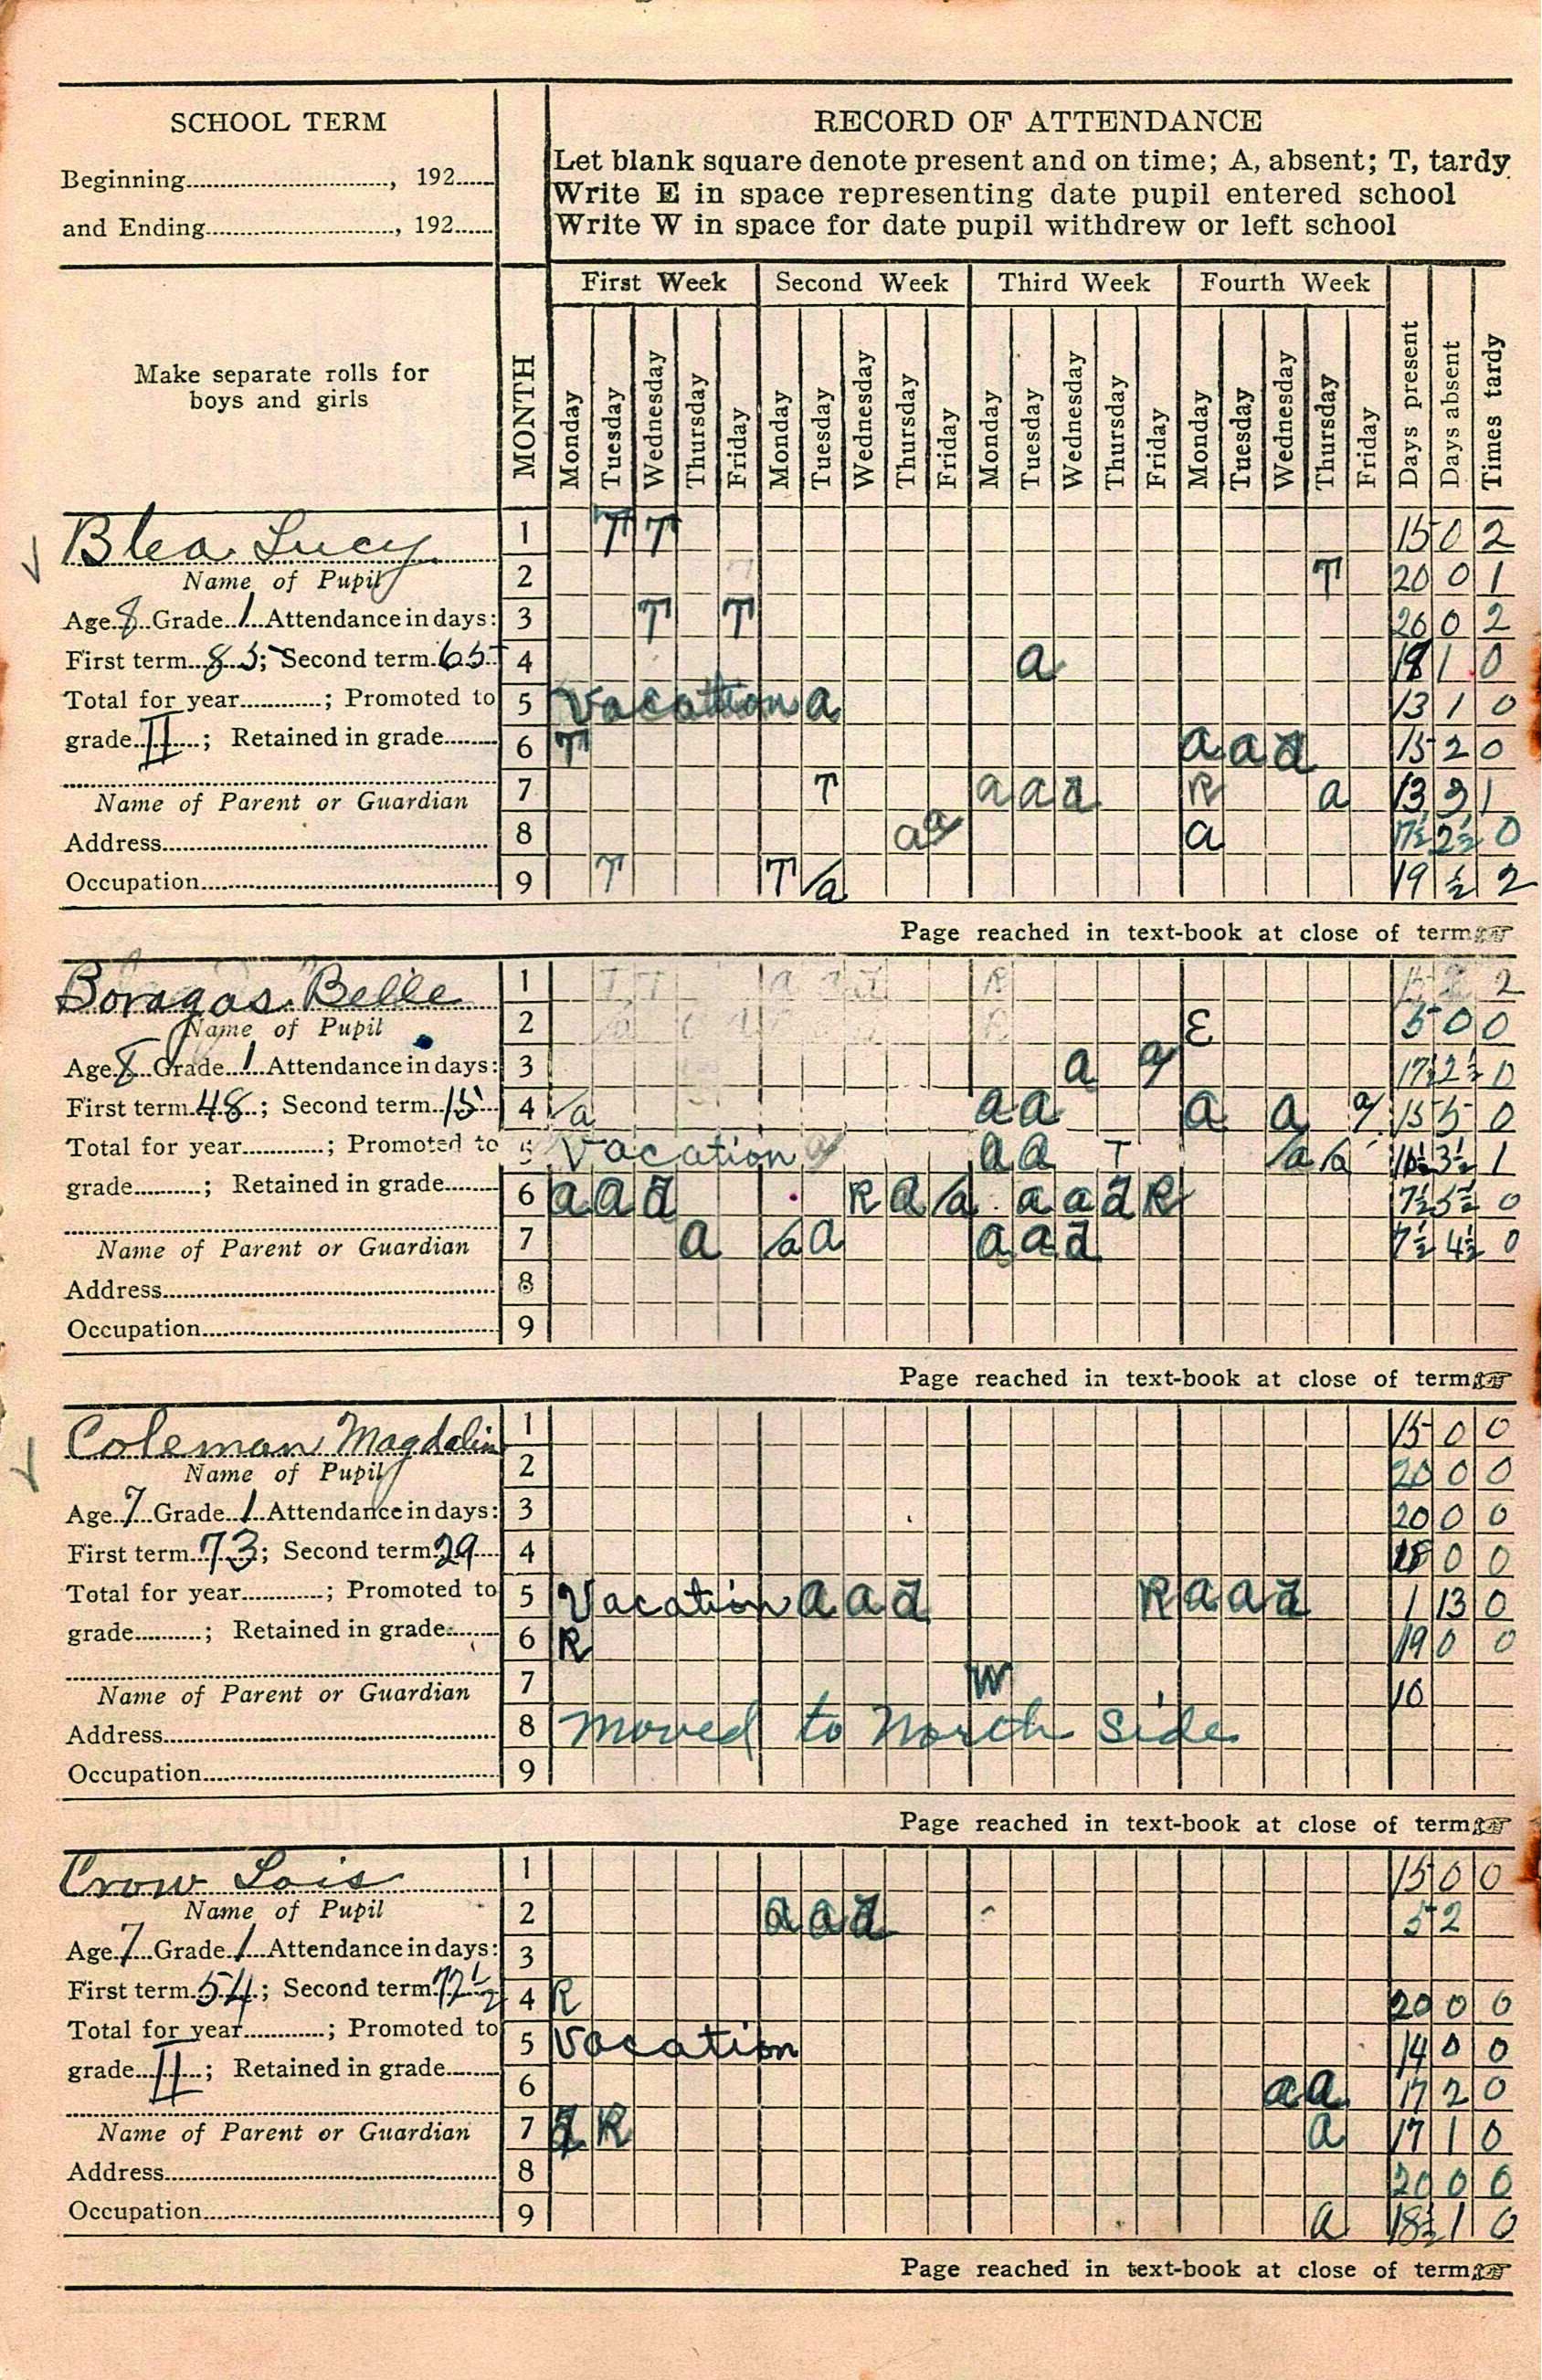 SCHOOL TERM
Beginning............, 192......
and Ending............, 192......
RECORD OF ATTENDANCE
Let blank square denote present and on time; A, absent; T, tardy
Write E in space representing date pupil entered school
Write W in space for date pupil withdrew or left school
Make separate rolls for
boys and girls
MONTH
First Week Second Week Third Week Fourth Week
Monday Tuesday Wednesday Thursday Friday Monday Tuesday Wednesday Thursday Friday Monday Tuesday Wednesday Thursday Friday Monday Tuesday Wednesday Thursday Friday Days present Days absent Times tardy
Blea Lucy
Name of Pupil
Age 8 Grade 1 Attendance in days:
First term 85; Second term 65
Total for year............; Promoted to
grade II; Retained in grade........
Name of Parent or Guardian
Address............
Occupation............
1 T T 15 0 2
2 T 20 0 1
3 T T 20 0 2
4 a 18 1 0
5 Vacation a 13 1 0
6 T a a a 15 2 0
7 T a a a R a 13 1
8 a a a 17½ 2½ 0
9 T T a 19 ½ 2
Page reached in text-book at close of term
Boragas Belle
Name of Pupil
Age 8 Grade 1 Attendance in days:
First term 48; Second term 15
Total for year............; Promoted to
grade..........; Retained in grade........
Name of Parent or Guardian
Address............
Occupation............
1 2
2 E 5 0 0
3 a a 17½ 2½ 0
4 a a a a a a 15 5 0
5 Vacation a a T a a 3½ 1
6 a a a R a a a a a R 7½ 5½ 0
7 a a a a a a 7½ 4½ 0
8
9
Page reached in text-book at close of term
Coleman Magdalin
Name of Pupil
Age 7 Grade 1 Attendance in days:
First term 73; Second term 29
Total for year............; Promoted to
grade..........; Retained in grade........
Name of Parent or Guardian
Address............
Occupation............
1 15 0 0
2 20 0 0
3 20 0 0
4 18 0 0
5 Vacation a a a R a a a 1 13 0
6 R 19 0 0
7 W 10
8 moved to North side
9
Page reached in text-book at close of term
Crow Lois
Name of Pupil
Age 7 Grade 1 Attendance in days:
First term 54; Second term 72½
Total for year............; Promoted to
grade II; Retained in grade........
Name of Parent or Guardian
Address............
Occupation............
1 15 0 0
2 a a a 5 2
3
4 R 20 0 0
5 Vacation 14 0 0
6 a a 17 2 0
7 a R a 17 1 0
8 20 0 0
9 a 18½ 1 0
Page reached in text-book at close of term